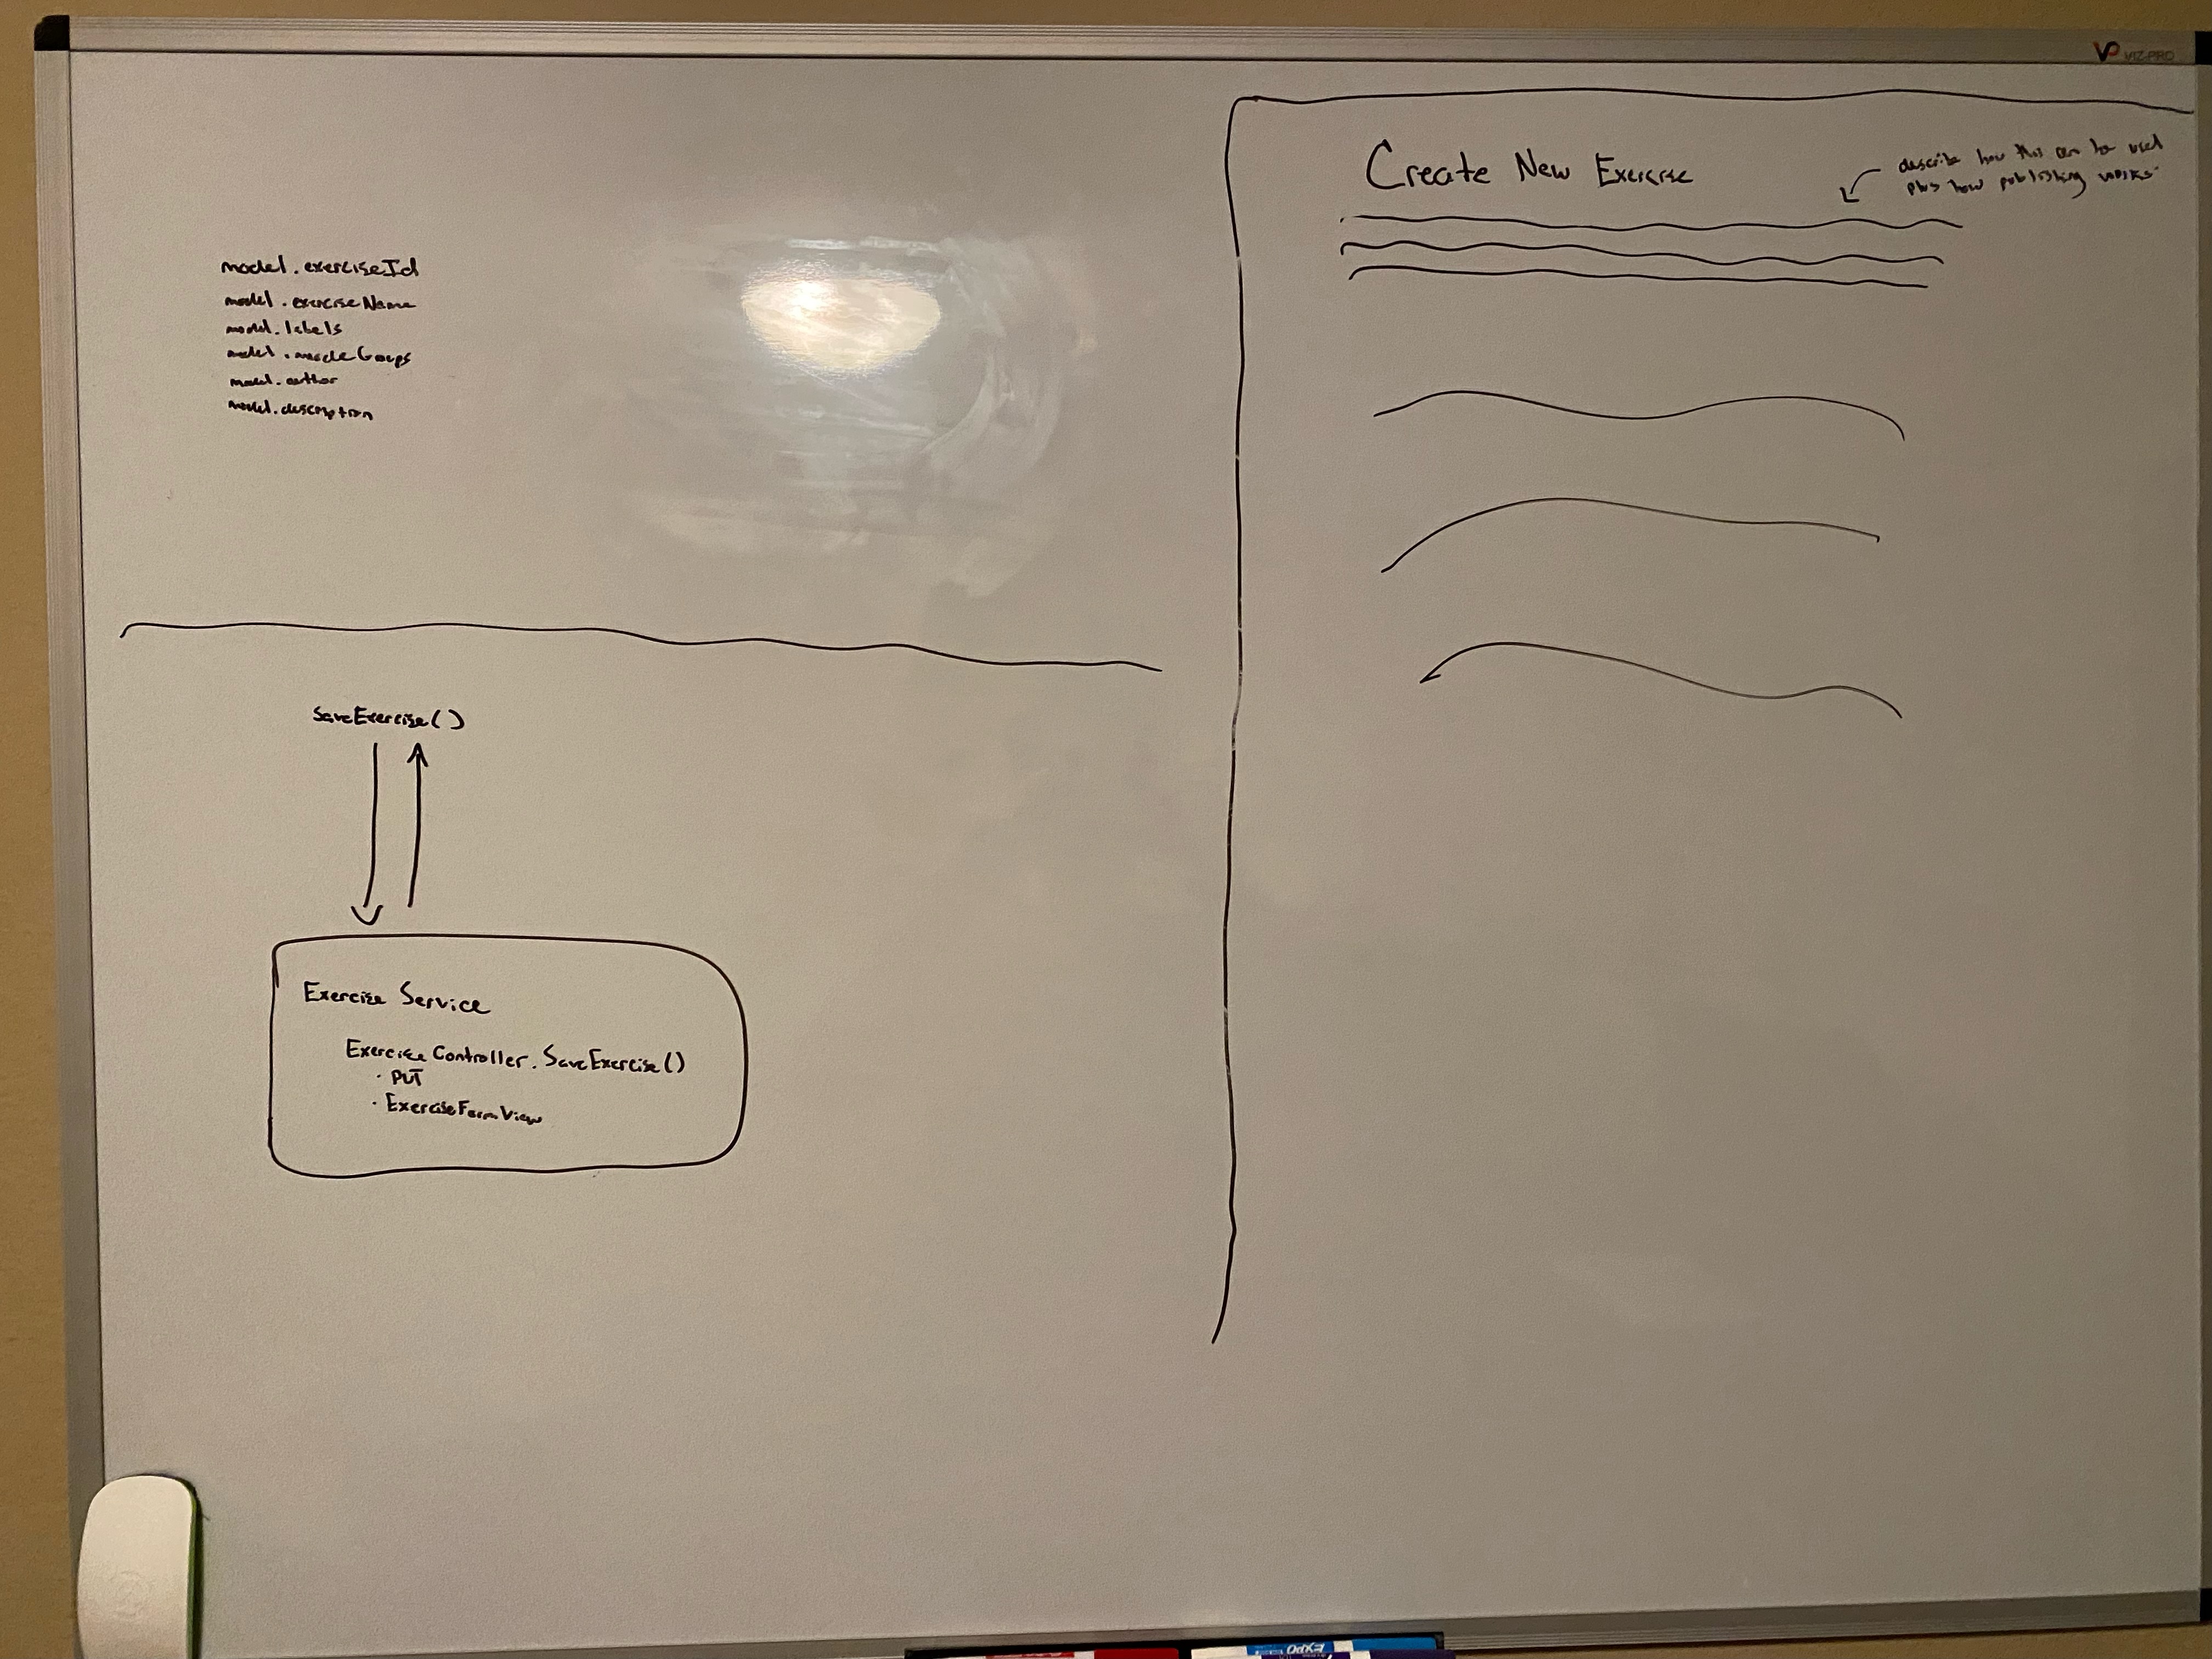 model.exerciseId
model.exerciseName
model.labels
model.muscleGroups
model.author
model.description
SaveExercise()
Exercise Service
ExerciseController.SaveExercise()
· PUT
· ExerciseFormView
VP VIZ-PRO
Create New Exercise
describe how this can be used
plus how publishing works
EXPO